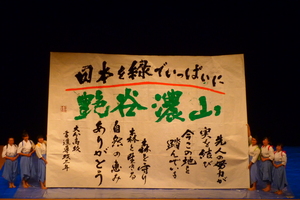 日本を緑でいっぱいに
艶谷濃山
先人の努力が
実を結び
今この地を
踏んでいる
森を守り
森と生きる
自然の恵み
ありがとう
大分高校
書道専攻二年